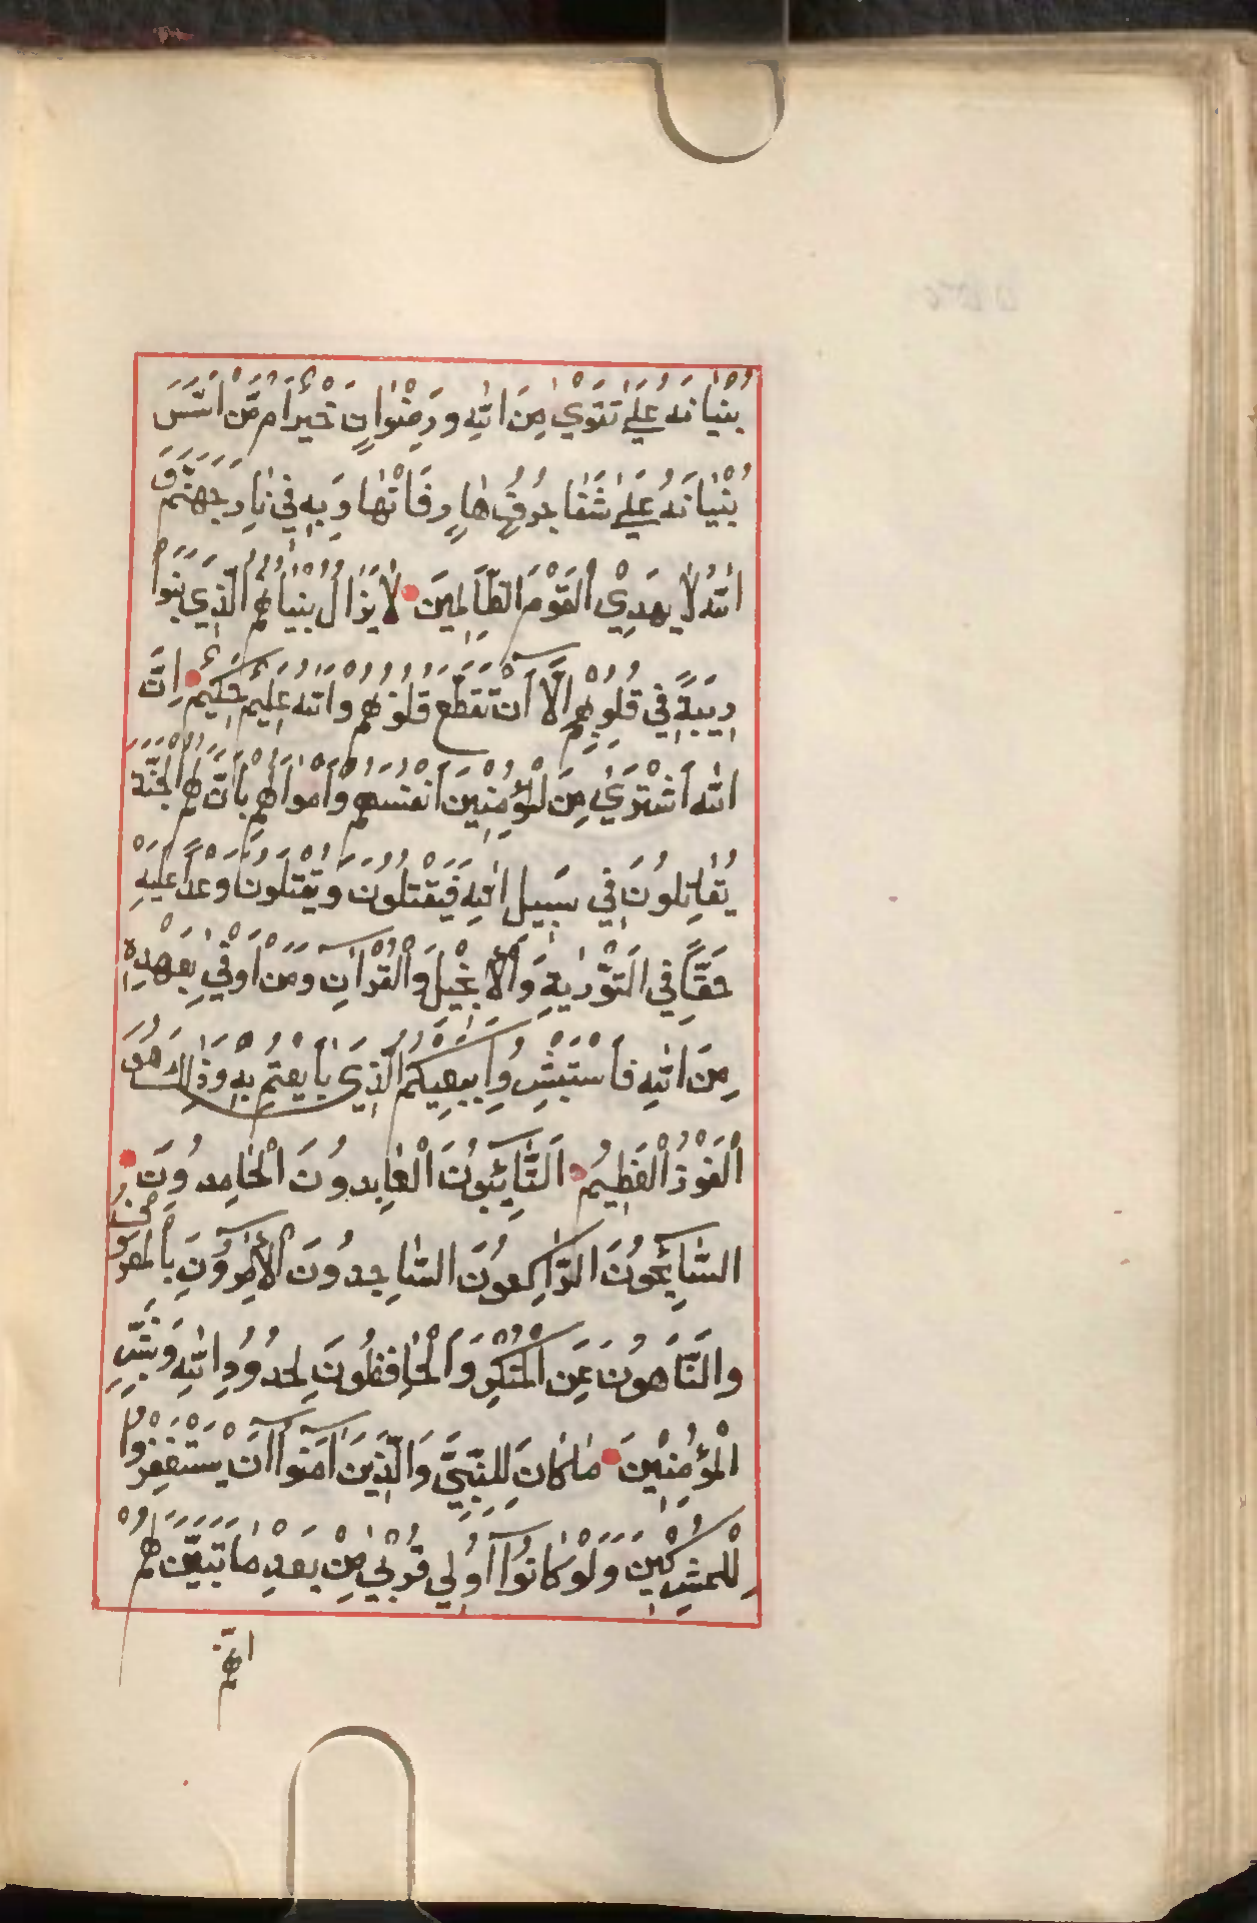 بُنْيَانَهُ عَلَىٰ تَقْوَىٰ مِنَ اللّٰهِ وَرِضْوَانٍ خَيْرٌ أَمْ مَّنْ اَسَّسَ
بُنْيَانَهُ عَلَىٰ شَفَا جُرُفٍ هَارٍ فَانْهَارَ بِهٖ فِي نَارِ جَهَنَّمَ وَ
اللّٰهُ لَا يَهْدِي الْقَوْمَ الظَّالِمِينَ لَا يَزَالُ بُنْيَانُهُمُ الَّذِي بَنَوْا
رِيبَةً فِي قُلُوبِهِمْ اِلَّا اَنْ تَقَطَّعَ قُلُوبُهُمْ وَاللّٰهُ عَلِيمٌ حَكِيمٌ اِنَّ
اللّٰهَ اشْتَرَىٰ مِنَ الْمُؤْمِنِينَ اَنْفُسَهُمْ وَاَمْوَالَهُمْ بِاَنَّ لَهُمُ الْجَنَّةَ
يُقَاتِلُونَ فِي سَبِيلِ اللّٰهِ فَيَقْتُلُونَ وَيُقْتَلُونَ وَعْدًا عَلَيْهِ
حَقًّا فِي التَّوْرٰيةِ وَالْاِنْجِيلِ وَالْقُرْآنِ وَمَنْ اَوْفَىٰ بِعَهْدِهٖ
مِنَ اللّٰهِ فَاسْتَبْشِرُوا بِبَيْعِكُمُ الَّذِي بَايَعْتُمْ بِهٖ وَذٰلِكَ هُوَ
الْفَوْزُ الْعَظِيمُ اَلتَّائِبُونَ الْعَابِدُونَ الْحَامِدُونَ
السَّائِحُونَ الرَّاكِعُونَ السَّاجِدُونَ الْآمِرُونَ بِالْمَعْرُوفِ
وَالنَّاهُونَ عَنِ الْمُنْكَرِ وَالْحَافِظُونَ لِحُدُودِ اللّٰهِ وَبَشِّرِ
الْمُؤْمِنِينَ مَا كَانَ لِلنَّبِيِّ وَالَّذِينَ اٰمَنُوا اَنْ يَسْتَغْفِرُوا
لِلْمُشْرِكِينَ وَلَوْ كَانُوا اُولِي قُرْبَىٰ مِنْ بَعْدِ مَا تَبَيَّنَ لَهُمْ
انهم